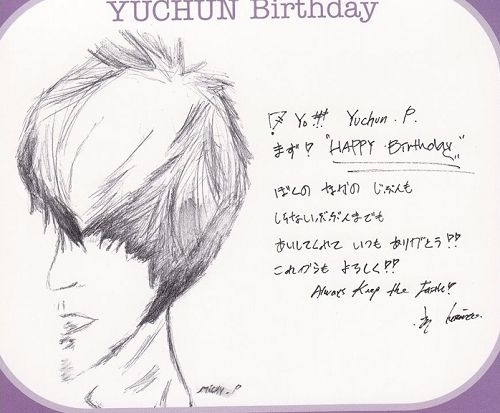 YUCHUN Birthday
Yo!!! Yuchun.P.
まず!? "HAPPY Birthday"
ぼくの なかの じぶんも
しらない ぶぶんまでも
あいしてくれて いつも ありがとう!!
これからも よろしく!!
Always Keep the Faith!
MICKY.P